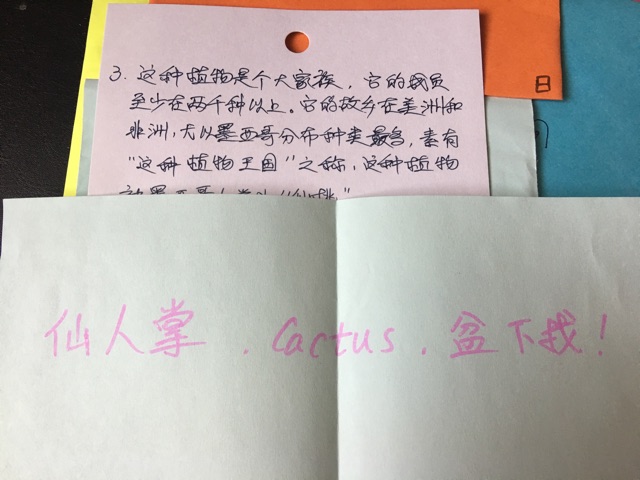 3. 这种植物是个大家族，它的成员
至少在两千种以上。它的故乡在美洲和
非洲，尤以墨西哥分布种类最多，素有
"这种植物王国"之称，这种植物
日
仙人掌．Cactus．盆下找！